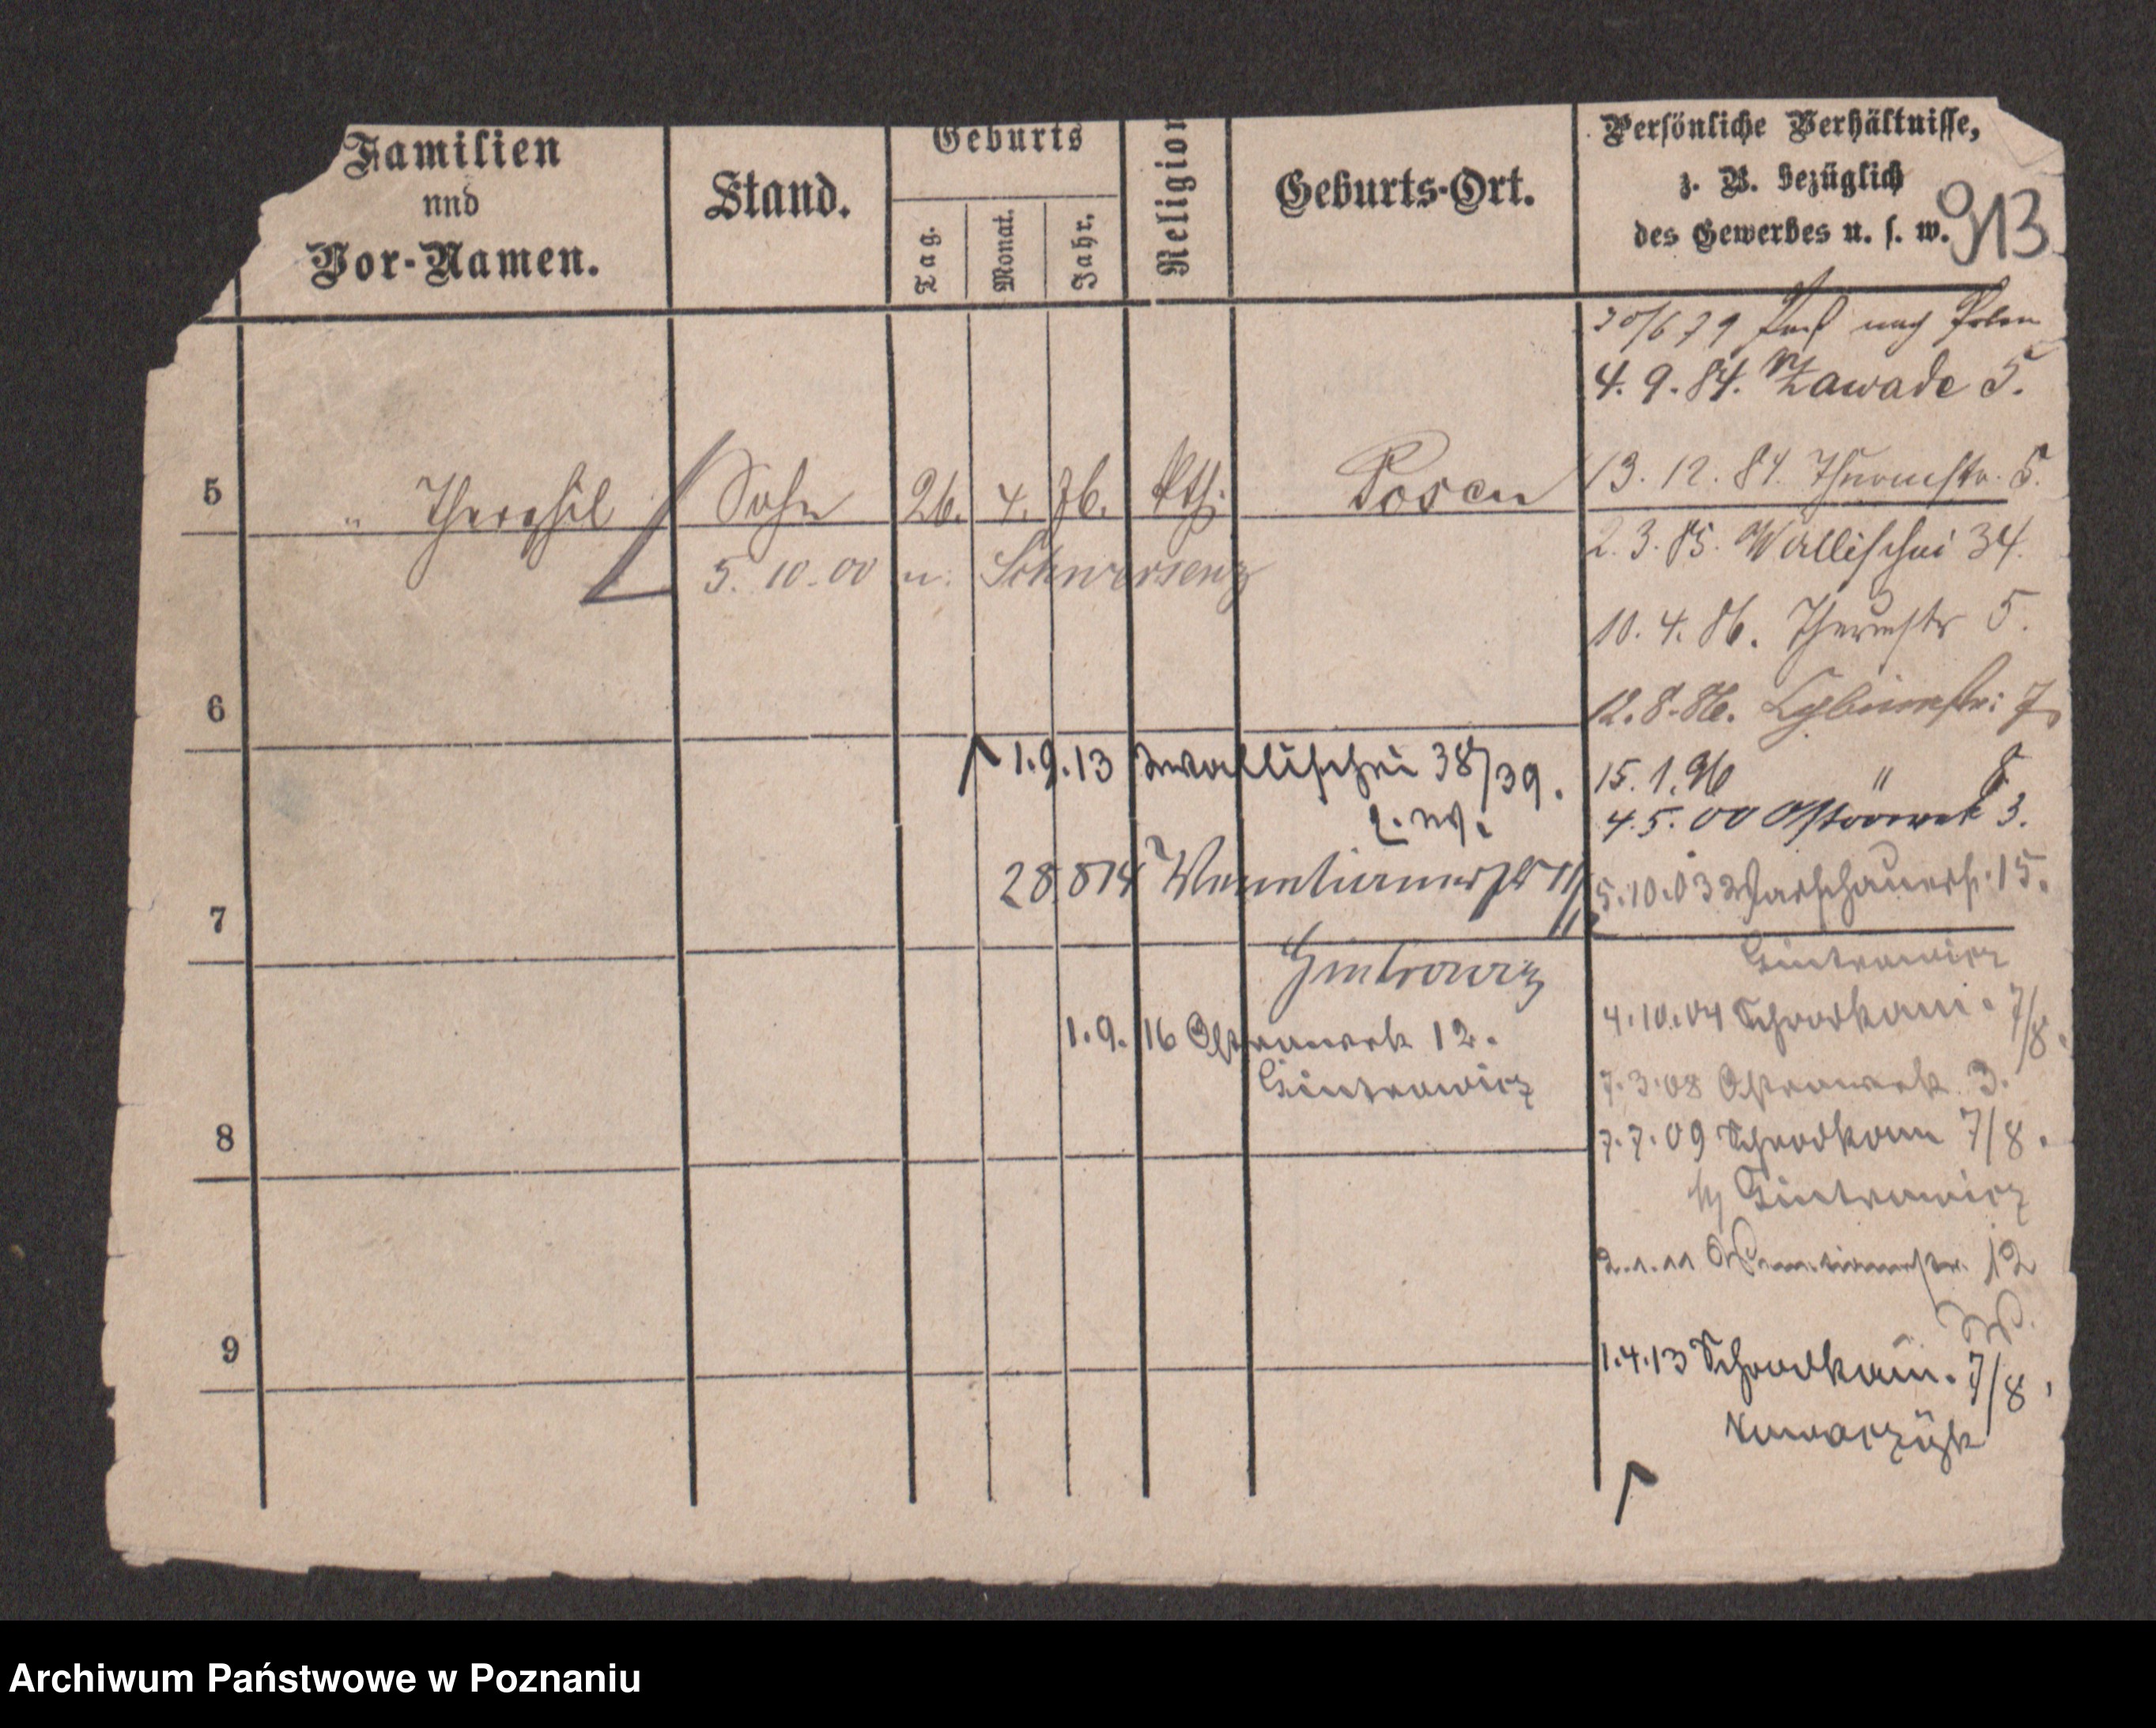 Familien
und
Vor-Namen.
Stand.
Geburts
Tag.
Monat.
Jahr.
Religion
Geburts-Ort.
Persönliche Verhältnisse,
z. B. bezüglich
des Gewerbes u. s. w.
913
30/6 79 nach Polen
4. 9. 84. Zawade 5.
13. 12. 84. Thurmstr. 5.
5 " Theophil Sohn 26. 4. 76. kth. Posen
2. 3. 85. Wallischei 34.
5. 10. 00 n. Schwersenz
10. 4. 86. Thurmstr 5.
6
12. 8. 86. 7
1.9.13 Wallischei 38/39.
15. 1. 96 " 8
4. 5. 00 Ostrowek 3.
28.8 14 11
5.10.03 Warschauerst. 15.
7
Gintrowicz
Gintrowicz
4.10.04 Schrodkam. 7/8.
1.9.16 Ostrowek 12.
Gintrowicz
7.3.08 Ostrowek 3.
7.7.09 Schrodkam 7/8.
8
Gintrowicz
2.1.11 12
9
1.4.13 Schrodkam. 7/8.